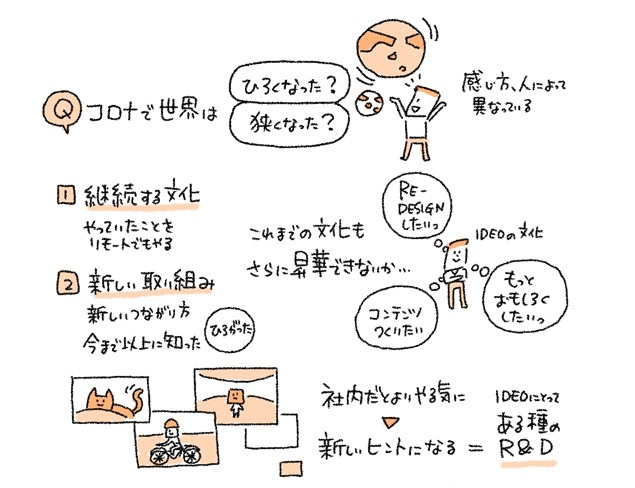 Q コロナで世界は
ひろくなった?
狭くなった?
感じ方、人によって
異なっている
1 継続する文化
やっていたことを
リモートでもやる
2 新しい取り組み
新しいつながり方
今まで以上に知った
ひろがった
これまでの文化も
さらに昇華できないか…
RE-
DESIGN
したいっ
IDEOの文化
コンテンツ
つくりたい
もっと
おもしろく
したいっ
社内だとよりやる気に
新しいヒントになる =
IDEOにとって
ある種の
R&D